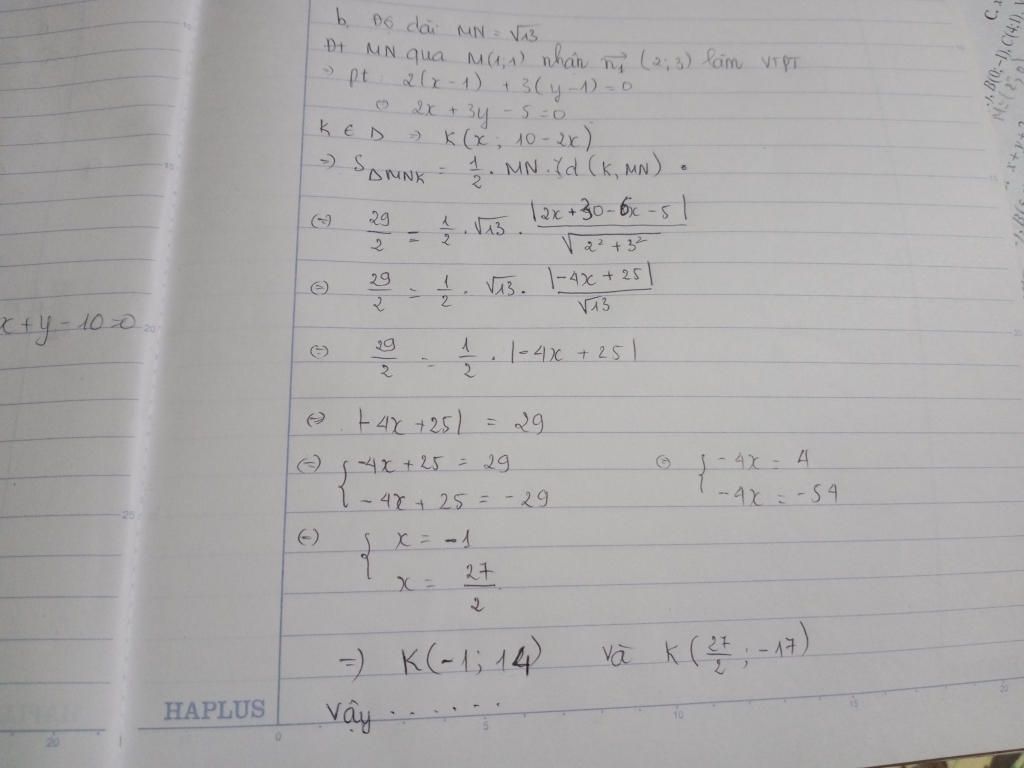 b. Độ dài MN = √13
Đt MN qua M(1;1) nhận n₁ (2;3) làm VTPT
⇒ pt: 2(x-1) + 3(y-1)=0
⇔ 2x + 3y - 5 = 0
K ∈ D ⇒ K(x; 10-2x)
⇒ S△MNK = 1/2 . MN . d(K, MN)
⇔ 29/2 = 1/2 . √13 . |2x+30-6x-5| / √(2²+3²)
⇔ 29/2 = 1/2 . √13 . |-4x+25| / √13
x+y-10=0
⇔ 29/2 = 1/2 . |-4x+25|
⇔ |-4x+25| = 29
⇔ { -4x+25 = 29 ⇔ { -4x = 4
-4x+25 = -29 -4x = -54
⇔ { x = -1
x = 27/2
⇒ K(-1; 14) và K(27/2; -17)
Vậy ......
HAPLUS